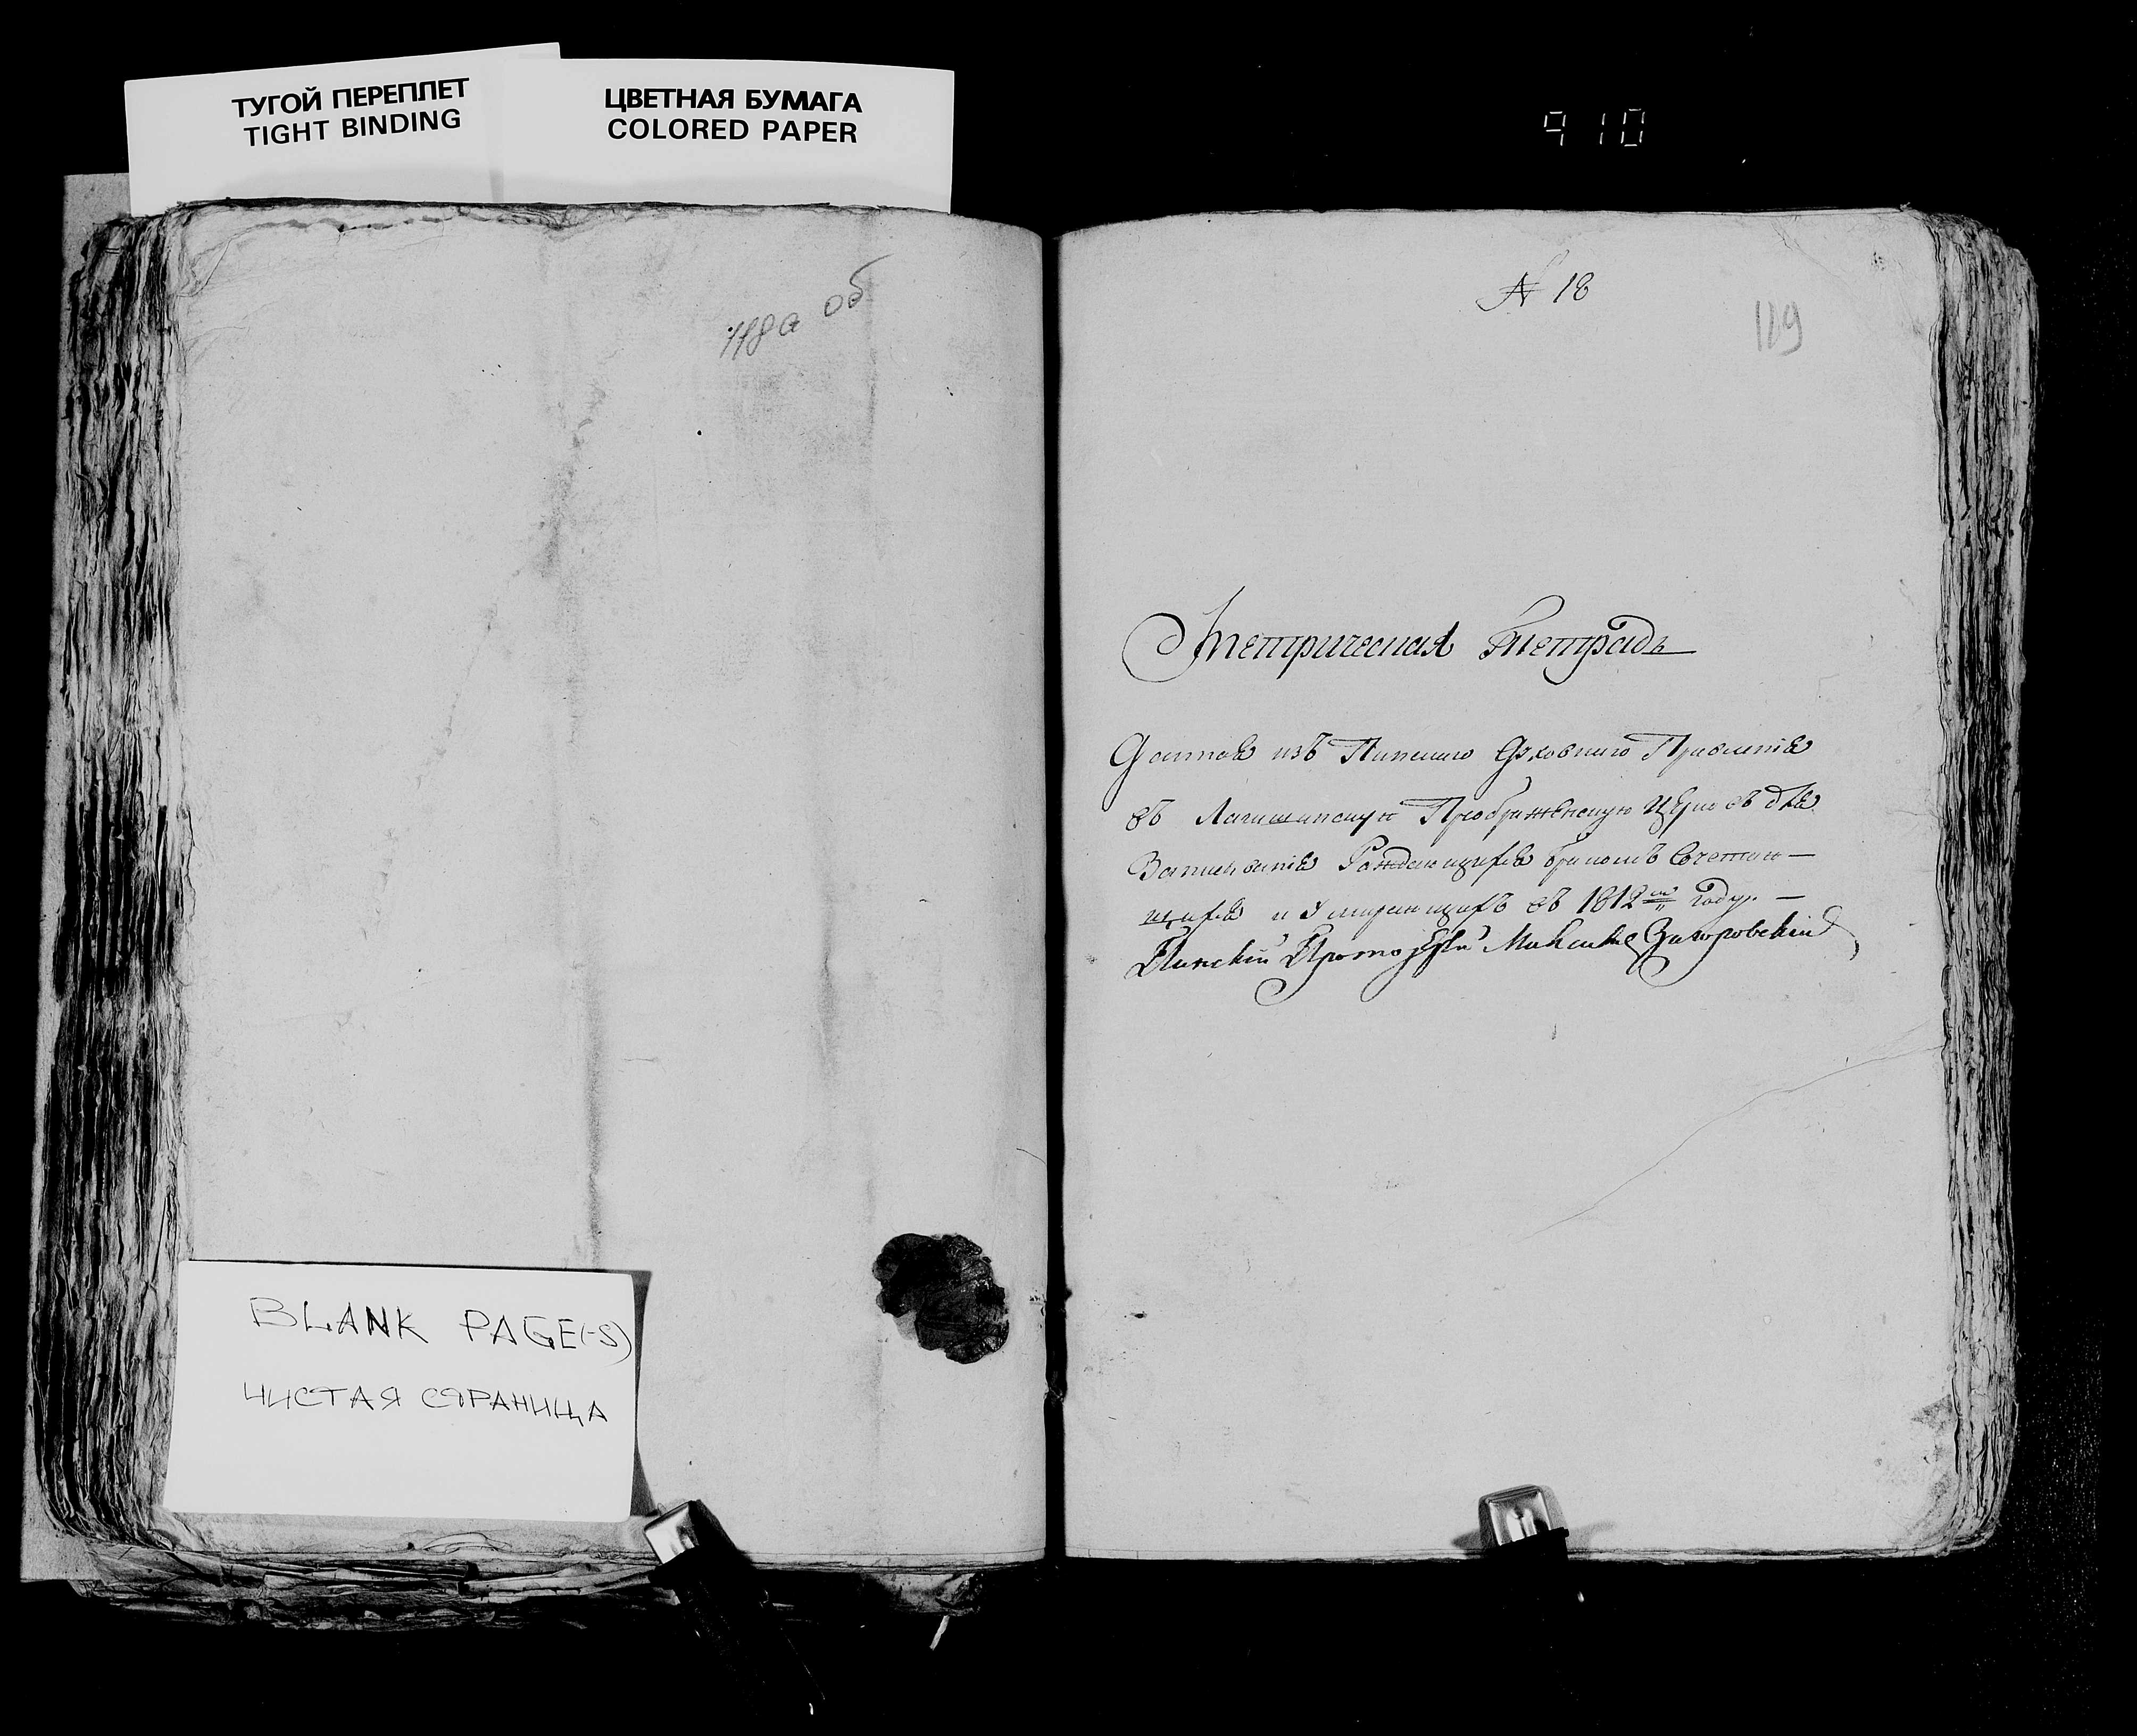 ТУГОЙ ПЕРЕПЛЕТ
TIGHT BINDING
ЦВЕТНАЯ БУМАГА
COLORED PAPER
910
118а об
№ 18
119
Метрическая Тетрадь
Данная изъ Пинскаго Духовнаго Правления
въ Логишинскую Преображенскую Церковь для
Записования Рождающихся бракомъ Сочетаю—
щихся и Умирающихъ въ 1812 м году. —
Пинский Протоиерей
BLANK PAGE(-S)
ЧИСТАЯ СТРАНИЦА